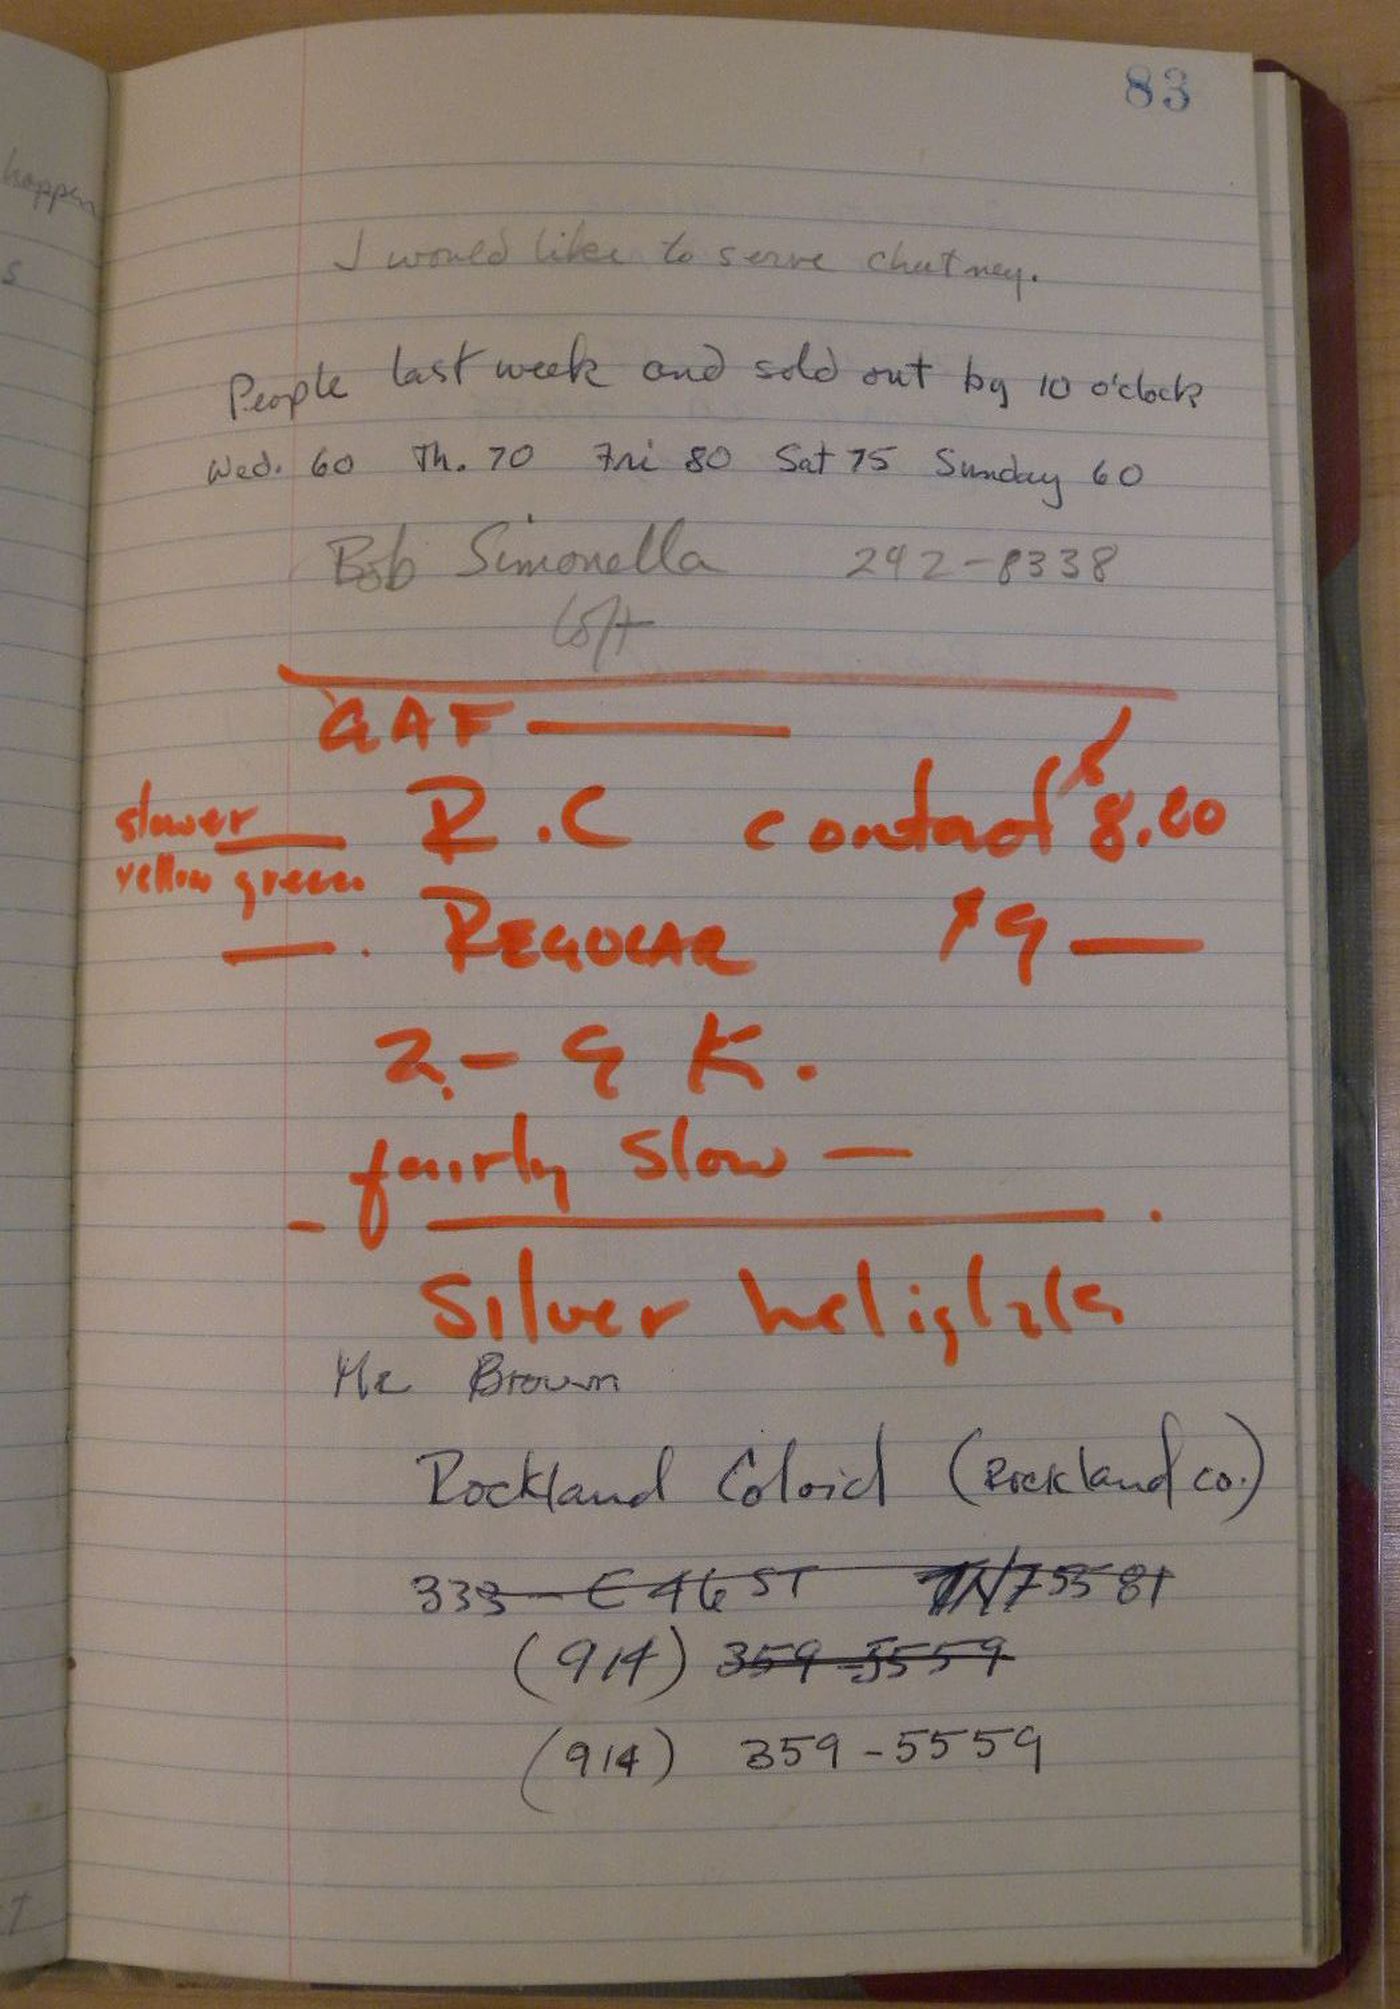 83
happen
s
I would like to serve chutney.
People last week and sold out by 10 o'clock
Wed. 60 Th. 70 Fri 80 Sat 75 Sunday 60
Bob Simonella 242-8338
loft
GAF
slower R.C contact 8.80
yellow green
REGULAR $9 —
2 - 9 K.
fairly slow —
Silver
Mr Brown
Rockland Coloid (Rockland co.)
333 - E 46 ST TN75581
(914) 359-5559
(914) 359-5559